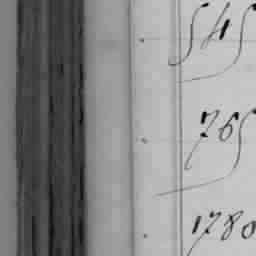 545
765
1780